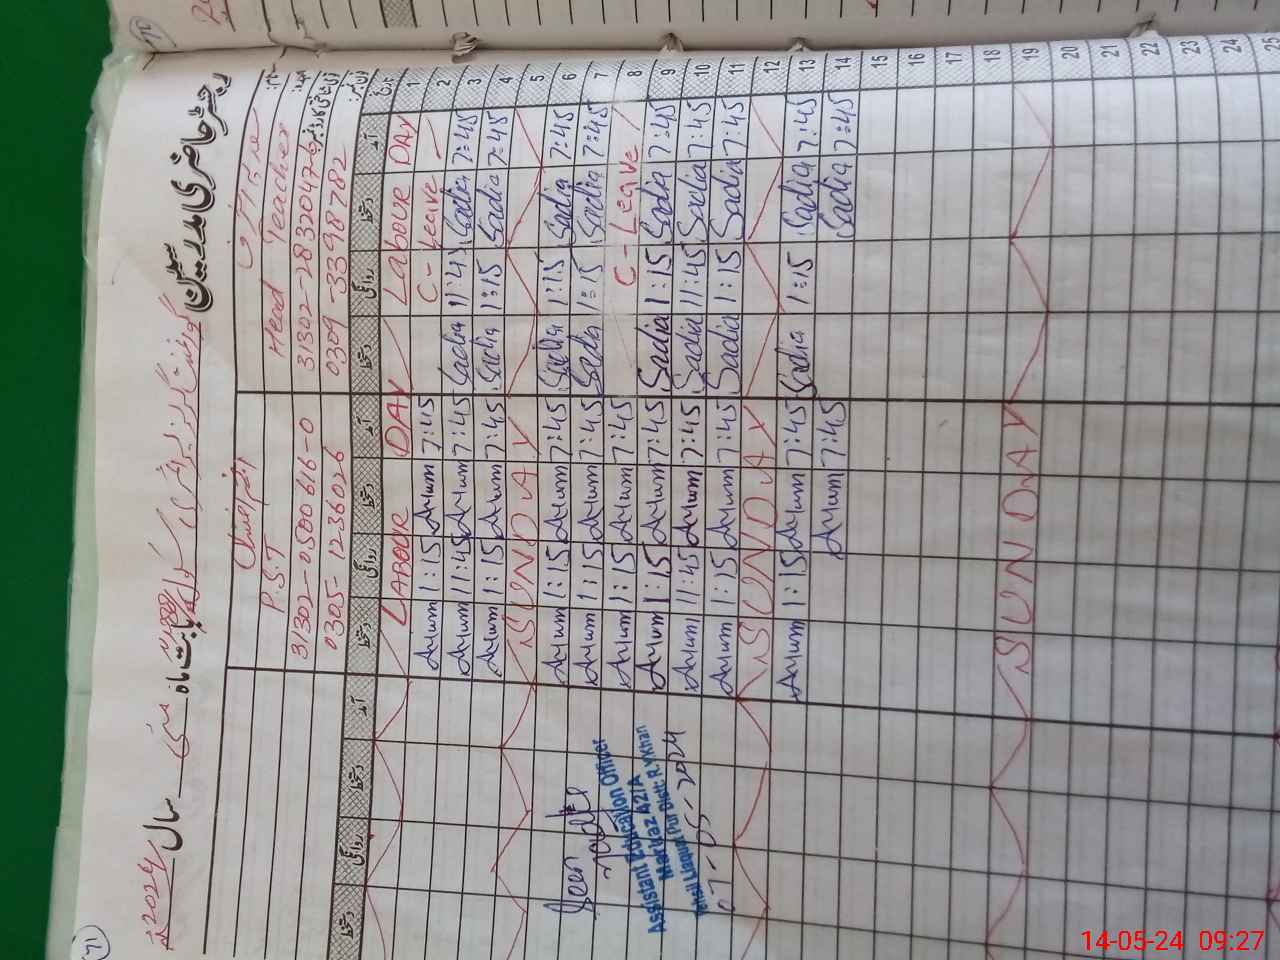 71
رجسٹر حاضری مدرسین
بابت ماہ مئی سال 2024ء
P.S.T Head Teacher
31302-0500616-0 31302-2832047-6
0305-1236026 0309-3398782
دستخط روانگی دستخط آمد دستخط روانگی دستخط آمد دستخط روانگی دستخط آمد تاریخ
LABOUR DAY LABOUR DAY 1
Anum 1:15 Anum 7:45 C-Leave 2
Anum 11:45 Anum 7:45 Sadia 11:45 Sadia 7:45 3
Anum 1:15 Anum 7:45 Sadia 1:15 Sadia 7:45 4
SUNDAY 5
Anum 1:15 Anum 7:45 Sadia 1:15 Sadia 7:45 6
Anum 1:15 Anum 7:45 Sadia 1:15 Sadia 7:45 7
Anum 1:15 Anum 7:45 C-Leave 8
Anum 1:15 Anum 7:45 Sadia 1:15 Sadia 7:45 9
Anum 11:45 Anum 7:45 Sadia 11:45 Sadia 7:45 10
Anum 1:15 Anum 7:45 Sadia 1:15 Sadia 7:45 11
SUNDAY 12
Anum 1:15 Anum 7:45 Sadia 1:15 Sadia 7:45 13
Anum 7:45 Sadia 7:45 14
15
16
17
18
SUNDAY 19
20
21
22
23
24
25
Assistant Education Officer
Markaz
Tehsil Liaquat Pur Distt: R.Y.Khan
07-05-2024
14-05-24 09:27